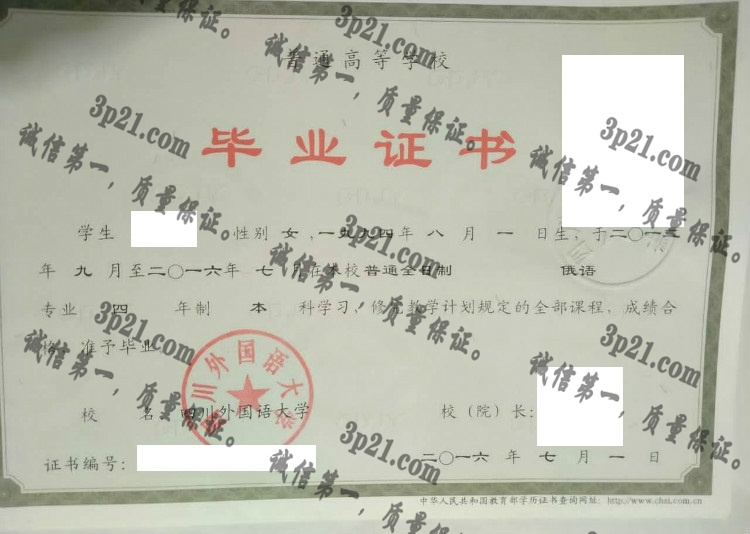 普通高等学校
毕业证书
学生 性别 女,一九九四年 八 月 一 日生,于二〇一二
年 九 月至二〇一六年 七 月在本校普通全日制 俄语
专业 四 年制 本 科学习,修完教学计划规定的全部课程,成绩合
格,准予毕业
校 名:四川外国语大学 校(院)长:
证书编号: 二〇一六 年 七 月 一 日
中华人民共和国教育部学历证书查询网址:http://www.chsi.com.cn
四川外国语大学
3p21.com
诚信第一,质量保证。
3p21.com
诚信第一,质量保证。
3p21.com
诚信第一,质量保证。
3p21.com
诚信第一,质量保证。
3p21.com
诚信第一,质量保证。
3p21.com
诚信第一,质量保证。
3p21.com
诚信第一,质量保证。
3p21.com
诚信第一,质量保证。